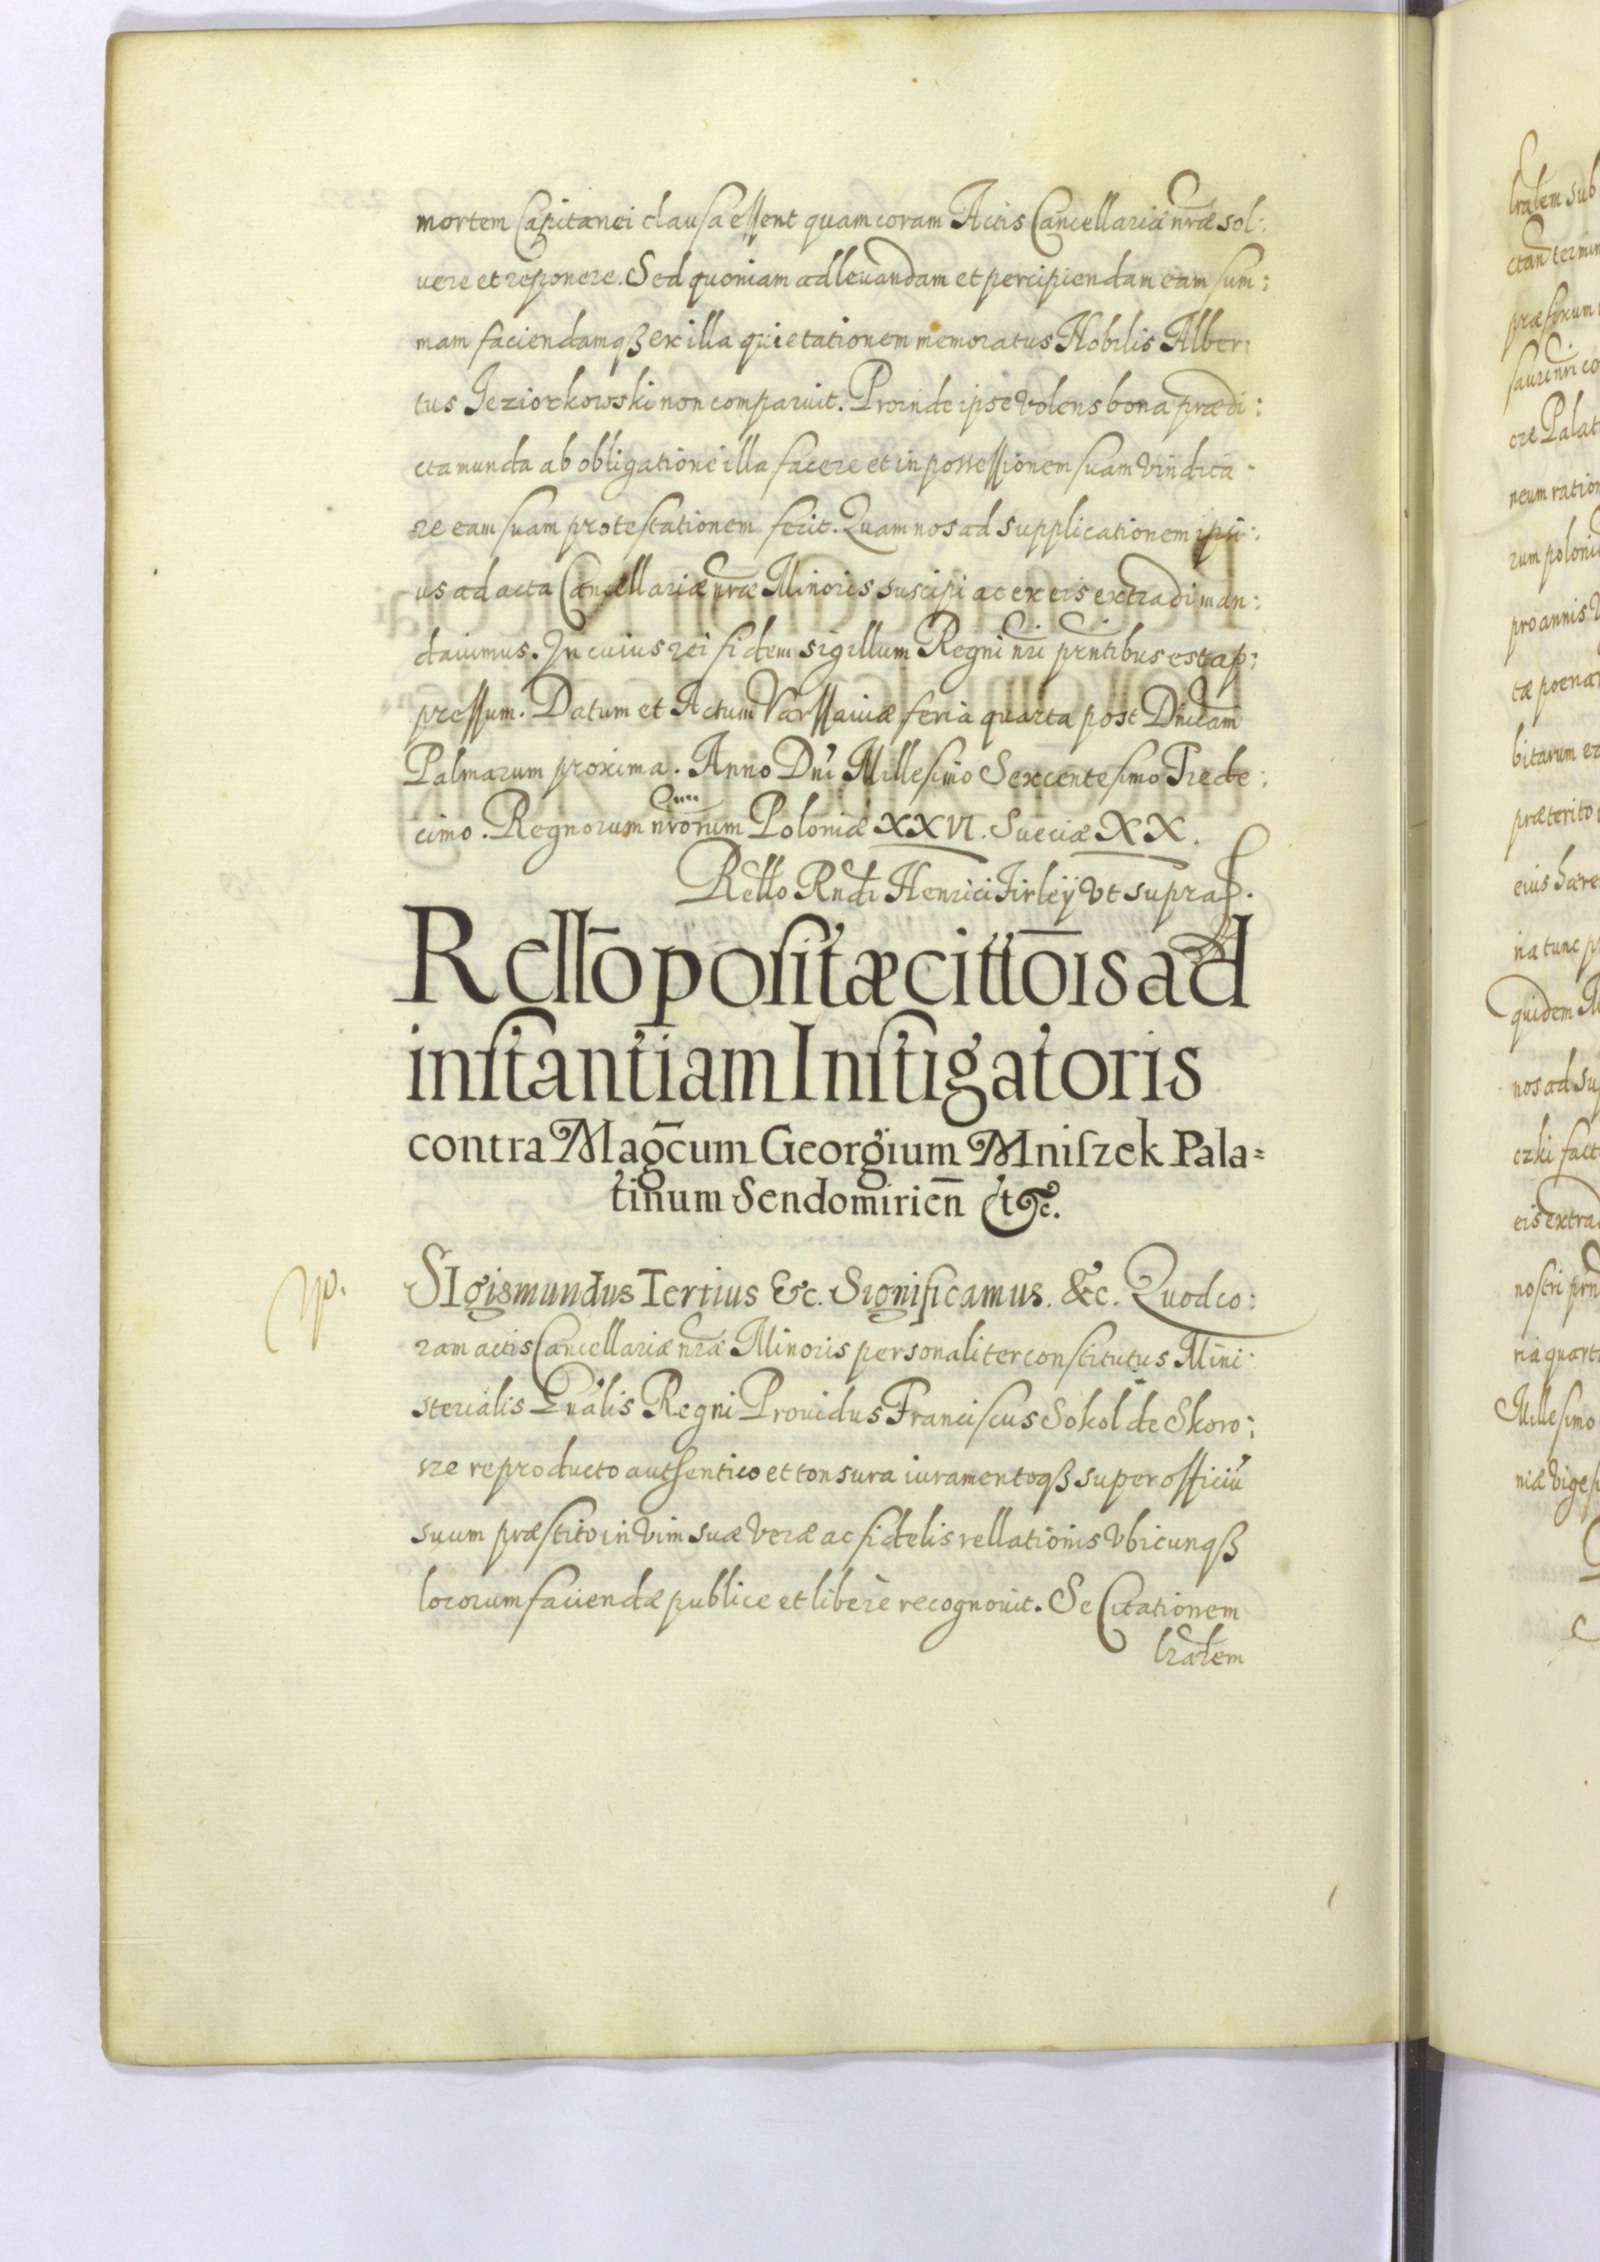 mortem Capitanei clausa essent quam coram Actis Cancellariæ nr̄æ sol:
vere et reponere. Sed quoniam ad levandam et percipiendam eam sum:
mam faciendamqꝫ ex illa quietationem memoratus Nobilis Alber:
tus Jeziorkowski non comparuit. Proinde ipse volens bona prædi:
cta munda ab obligatione illa facere et in possessionem suam vindica:
re eam suam protestationem fecit. Quam nos ad supplicationem ipsi:
us ad acta Cancellariæ nr̄æ Minoris suscipi ac ex eis extradi man:
davimus. In cuius rei fidem sigillum Regni nr̄i pn̄tibus est ap:
pressum. Datum et Actum Varssaviæ feria quarta post Dnīcam
Palmarum proxima. Anno Dn̄i Millesimo Sexcentesimo Trede:
cimo. Regnorum nr̄orum Poloniæ XXVI. Sueciæ XX.
Rello Rndi Henrici Firleÿ vt supra.
Rellō positæ cittōis ad
inſtantiam Inſtigatoris
contra Mag̅cum Georgium Mniſzek Pala=
tinum Sendomirien̄ etc.
SIgismundus Tertius &c. Significamus. &c. Quod co:
ram actis Cancellariæ nr̄æ Minoris personaliter constitutus Mini:
sterialis Gn̄alis Regni Providus Franciscus Sokol de Skoro:
sze reproducto authentico et tonsura iuramentoqꝫ super officiū
suum præstito in vim suæ veræ ac fidelis rellationis vbicunqꝫ
locorum faciendæ publice et liberè recognovit. Se Citationem
lr̄alem
lr̄alem sub
præfixum
ere Palat
neum ration
pro annis
præterito
quidem
nos ad su
czki fact
eis extrad
nostri prn
ria quart
Millesimo
niæ vige